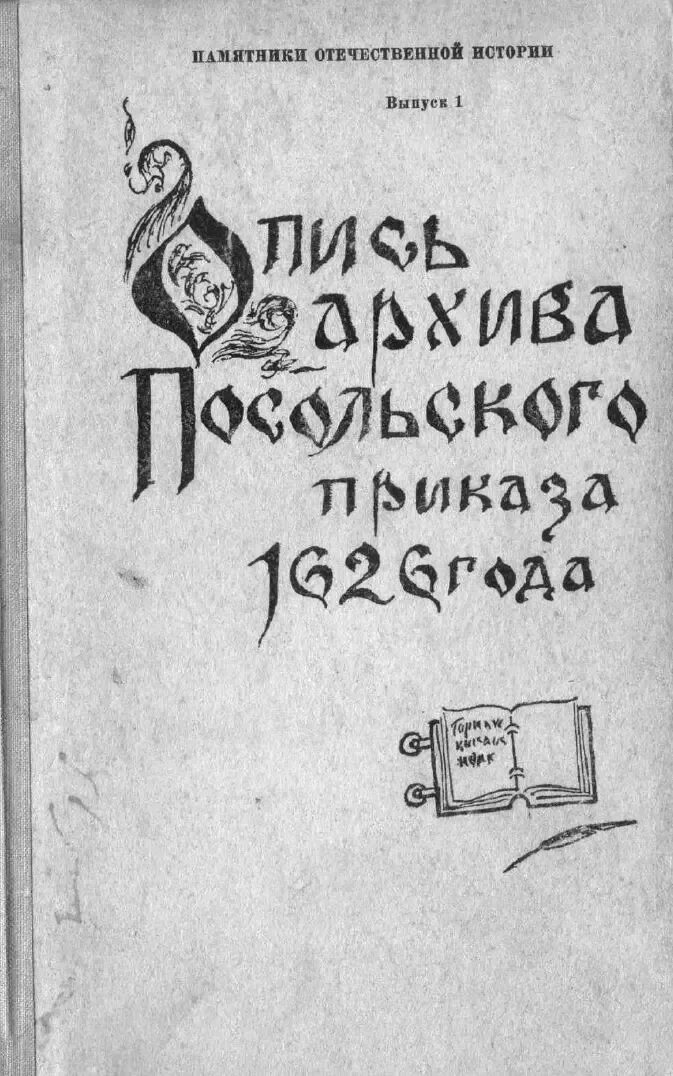 ПАМЯТНИКИ ОТЕЧЕСТВЕННОЙ ИСТОРИИ
Выпуск 1
Опись
архива
Посольского
приказа
1626 года